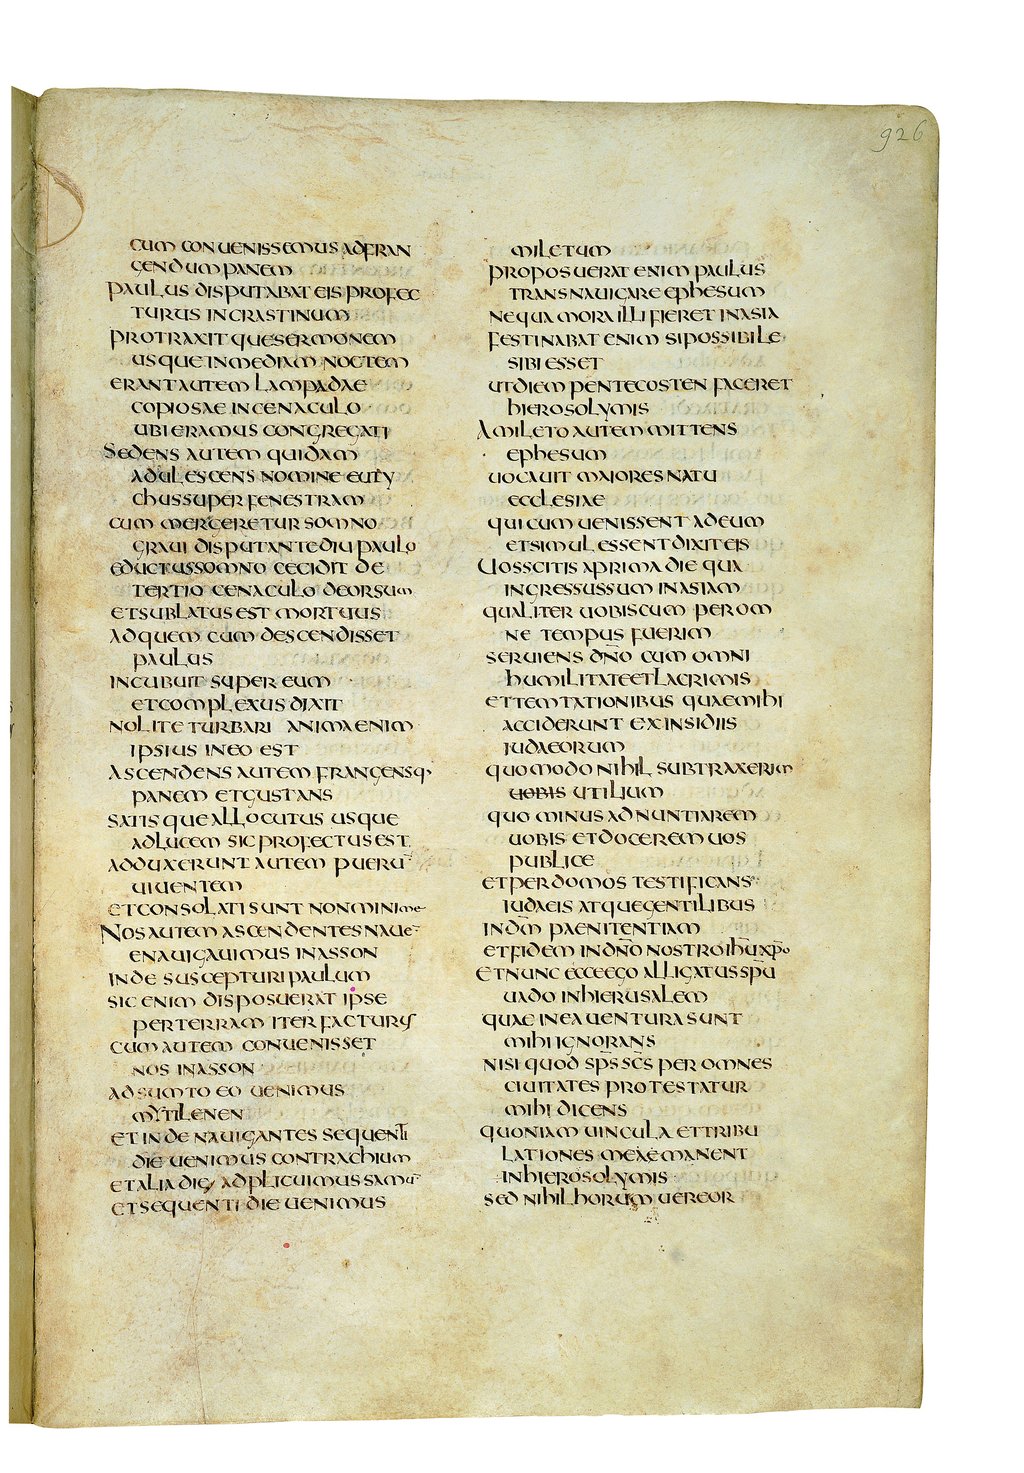 926
CUM CONUENISSEMUS ADFRAN
GENDUM PANEM
PAULUS DISPUTABAT EIS PROFEC
TURUS IN CRASTINUM
PROTRAXITQUE SERMONEM
USQUE IN MEDIAM NOCTEM
ERANT AUTEM LAMPADAE
COPIOSAE IN CENACULO
UBI ERAMUS CONGREGATI
SEDENS AUTEM QUIDAM
ADULESCENS NOMINE EUTY
CHUS SUPER FENESTRAM
CUM MERGERETUR SOMNO
GRAUI DISPUTANTE DIU PAULO
EDUCTUS SOMNO CECIDIT DE
TERTIO CENACULO DEORSUM
ET SUBLATUS EST MORTUUS
AD QUEM CUM DESCENDISSET
PAULUS
INCUBUIT SUPER EUM
ET COMPLEXUS DIXIT
NOLITE TURBARI ANIMA ENIM
IPSIUS IN EO EST
ASCENDENS AUTEM FRANGENSQ·
PANEM ET GUSTANS
SATISQUE ALLOCUTUS USQUE
AD LUCEM SIC PROFECTUS EST
ADDUXERUNT AUTEM PUERU¯
UIUENTEM
ET CONSOLATI SUNT NON MINIME
NOS AUTEM ASCENDENTES NAUE¯
ENAUIGAUIMUS IN ASSON
INDE SUSCEPTURI PAULUM
SIC ENIM DISPOSUERAT IPSE
PER TERRAM ITER FACTURUS
CUM AUTEM CONUENISSET
NOS IN ASSON
ADSUMTO EO UENIMUS
MYTILENEN
ET INDE NAUIGANTES SEQUENTI
DIE UENIMUS CONTRA CHIUM
ET ALIA DIE ADPLICUIMUS SAMU¯
ET SEQUENTI DIE UENIMUS
MILETUM
PROPOSUERAT ENIM PAULUS
TRANSNAUIGARE EPHESUM
NE QUA MORA ILLI FIERET IN ASIA
FESTINABAT ENIM SI POSSIBILE
SIBI ESSET
UT DIEM PENTECOSTEN FACERET
HIEROSOLYMIS
A MILETO AUTEM MITTENS
EPHESUM
UOCAUIT MAIORES NATU
ECCLESIAE
QUI CUM UENISSENT AD EUM
ET SIMUL ESSENT DIXIT EIS
UOS SCITIS A PRIMA DIE QUA
INGRESSUS SUM IN ASIAM
QUALITER UOBISCUM PER OM
NE TEMPUS FUERIM
SERUIENS DN̄O CUM OMNI
HUMILITATE ET LACRIMIS
ET TEMTATIONIBUS QUAE MIHI
ACCIDERUNT EX INSIDIIS
IUDAEORUM
QUOMODO NIHIL SUBTRAXERIM
UOBIS UTILIUM
QUO MINUS ADNUNTIAREM
UOBIS ET DOCEREM UOS
PUBLICE
ET PER DOMOS TESTIFICANS
IUDAEIS ATQUE GENTILIBUS
IN DM̄ PAENITENTIAM
ET FIDEM IN DN̄O NOSTRO IHŪ XP̄O
ET NUNC ECCE EGO ALLIGATUS SPŪ
UADO IN HIERUSALEM
QUAE IN EA UENTURA SUNT
MIHI IGNORANS
NISI QUOD SPS̄ SCS̄ PER OMNES
CIUITATES PROTESTATUR
MIHI DICENS
QUONIAM UINCULA ET TRIBU
LATIONES ME MANENT
IN HIEROSOLYMIS
SED NIHIL HORUM UEREOR